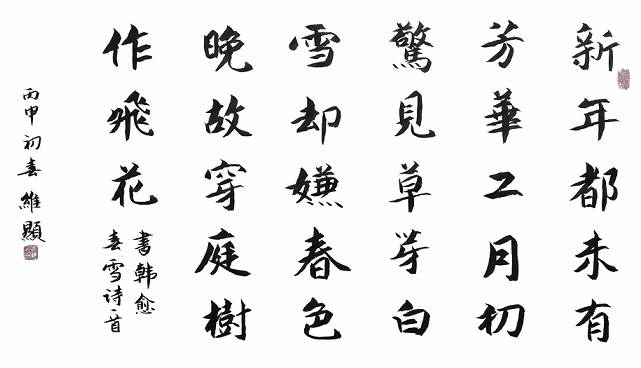 新年都未有
芳華二月初
驚見草芽白
雪却嫌春色
晚故穿庭樹
作飛花
書韩愈
春雪诗一首
丙申初春維顯